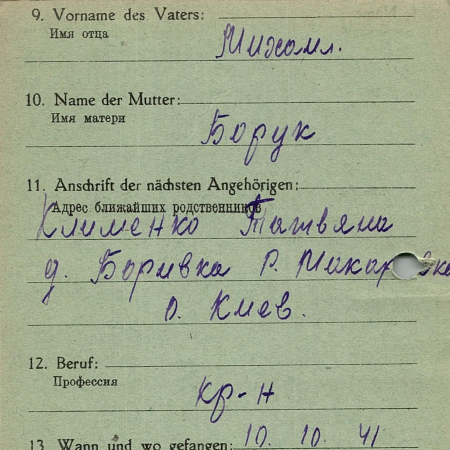 9. Vorname des Vaters:
Имя отца
Михаил.
10. Name der Mutter:
Имя матери
Борук
11. Anschrift der nächsten Angehörigen:
Адрес ближайших родственников
Клименко Татьяна
д. Боривка Р.
О. Киев.
12. Beruf:
Профессия
кр-н
13. Wann und wo gefangen: 10. 10. 41